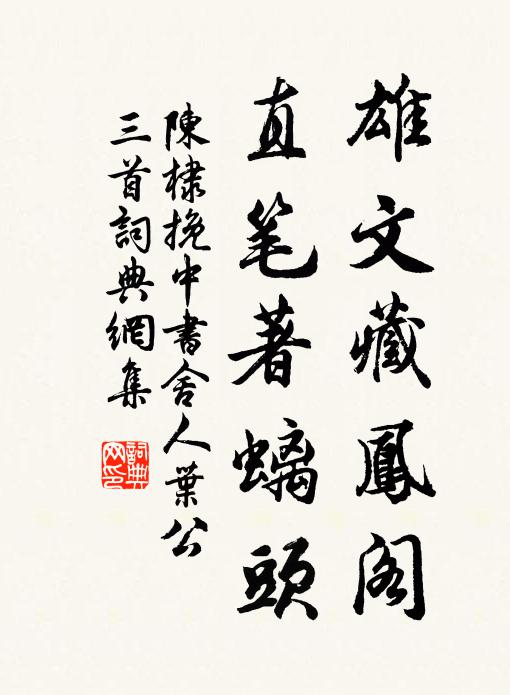 雄文藏鳳阁
直笔著螭頭
陳棣挽中書舍人葉公
三首詞典網集
詞典网印